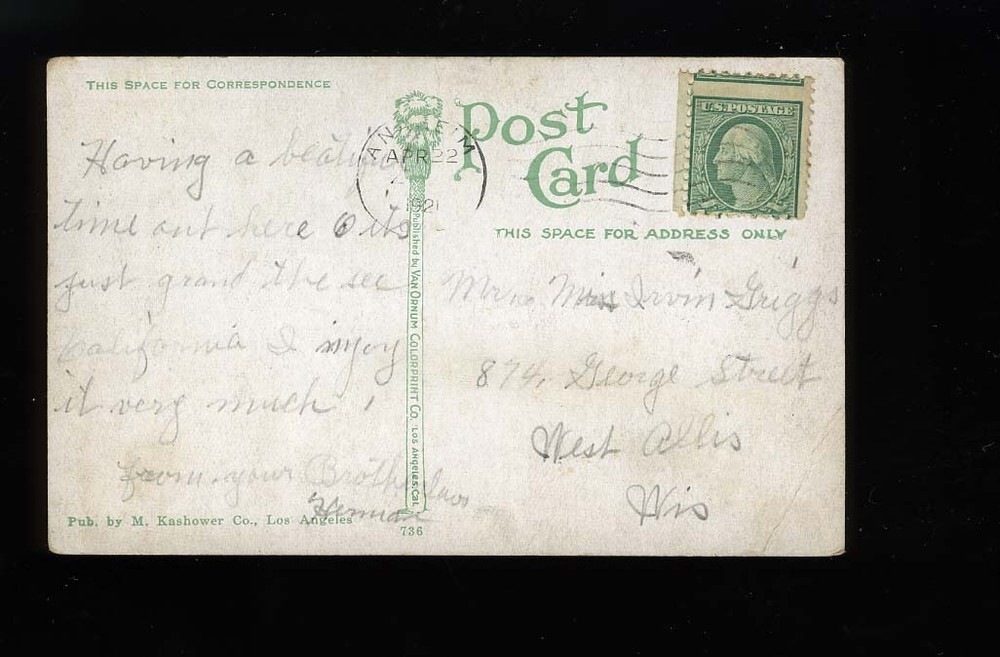 THIS SPACE FOR CORRESPONDENCE
Having a
time out here O its
just grand the see
California I injoy
it very much
from your Brother laws
Herman
Pub. by M. Kashower Co., Los Angeles
736
Published by VAN ORNUM COLORPRINT CO. LOS ANGELES, CAL.
ANAHEIM
APR 22
192
Post
Card
U.S. POSTAGE
THIS SPACE FOR ADDRESS ONLY
Irvin Griggs
874. George Street
West Allis
Wis